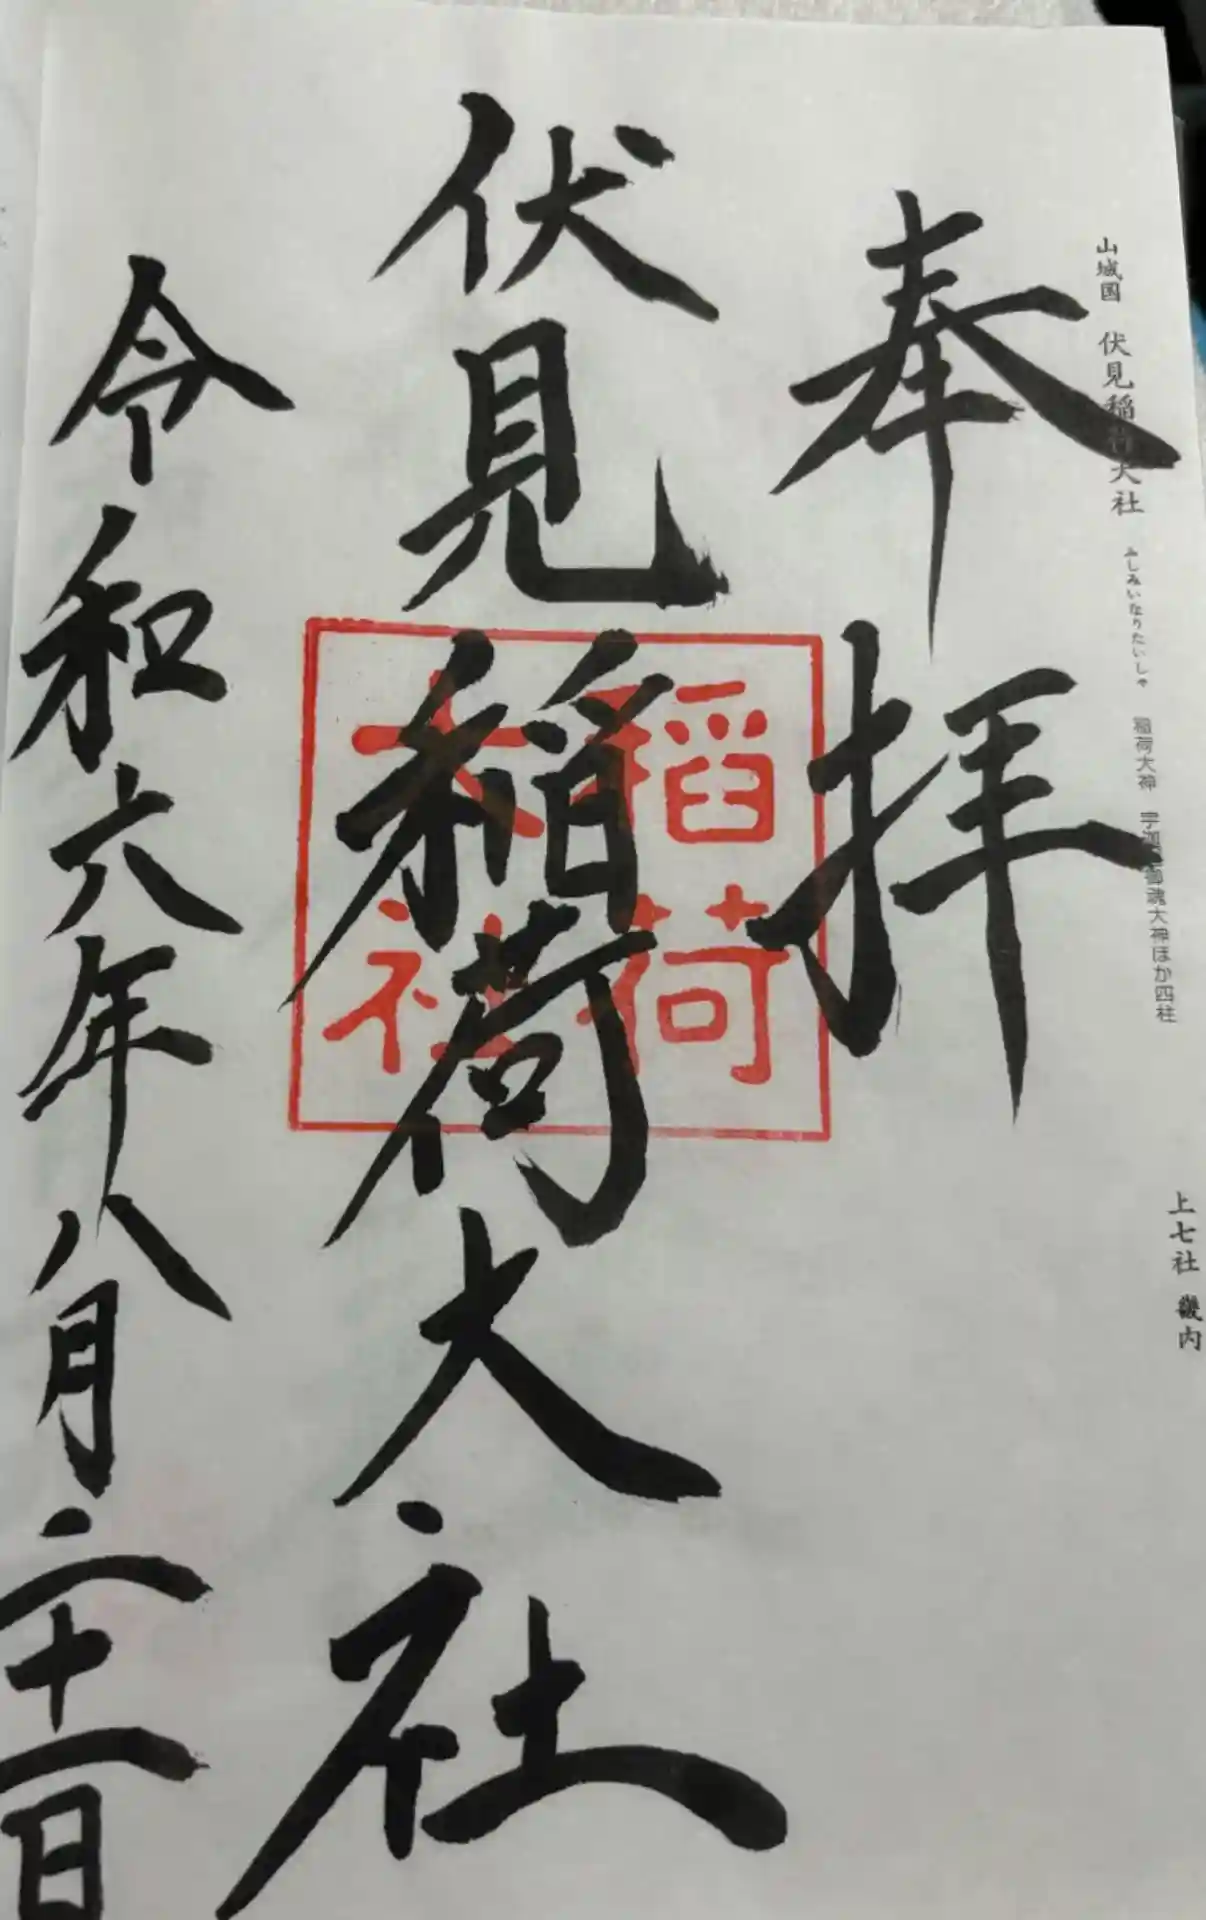 山城国 伏見稲荷大社 ふしみいなりたいしゃ 稲荷大神 宇迦之御魂大神ほか四柱 上七社 畿内
奉拝
伏見稲荷大社
稲荷
大社
令和六年八月二十一日